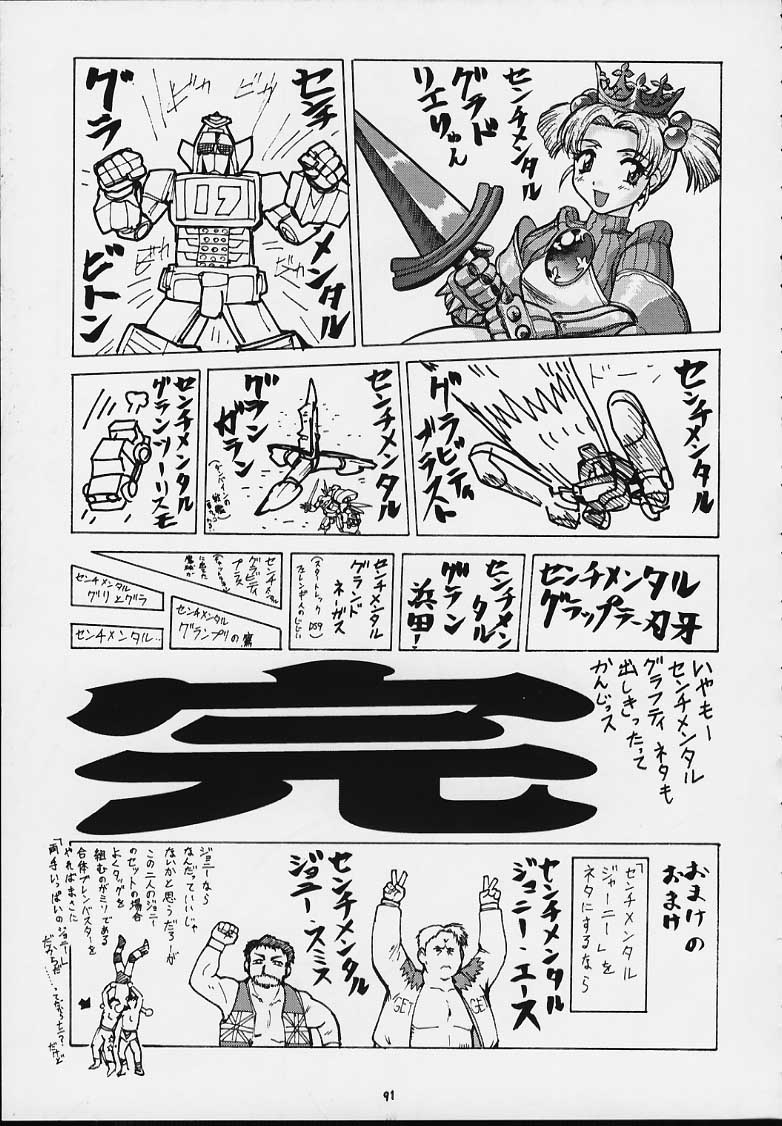 センチメンタル
グラド
リエりゅん
センチ
メンタル
グラ
ビトン
ピカ
ピカ
ピカ
ピカ
17
センチメンタル
グラビティ
ブラスト
ドーン
センチメンタル
グラン
ガラン
センチメンタル
グランツーリスモ
センチメンタル
グラップラー刃牙
センチメンタル
グラン
浜田!
センチメンタル
グランド
ネーガス
(スタートレックDS9
フェレンギ人のじじい)
センチメンタル
グラビティ
プラス
センチメンタル
グランプリの鷹
センチメンタル
グリとグラ
センチメンタル…
いやもー
センチメンタル
グラフティネタも
出しきったって
かんじっス
完
おまけの
おまけ
「センチメンタル
ジャーニー」を
ネタにするなら
センチメンタル
ジョニー・エース
GET
GET
センチメンタル
ジョニー・スミス
ジョニーなら
なんだっていいじゃ
ないかと思うだろーが
この二人のジョニー
のセットの場合
よくタッグを
組むのがミソである
合体ブレンバスターを
やればまさに
「両手いっぱいのジョニー」
だろうが……ってなろう
だけど
91